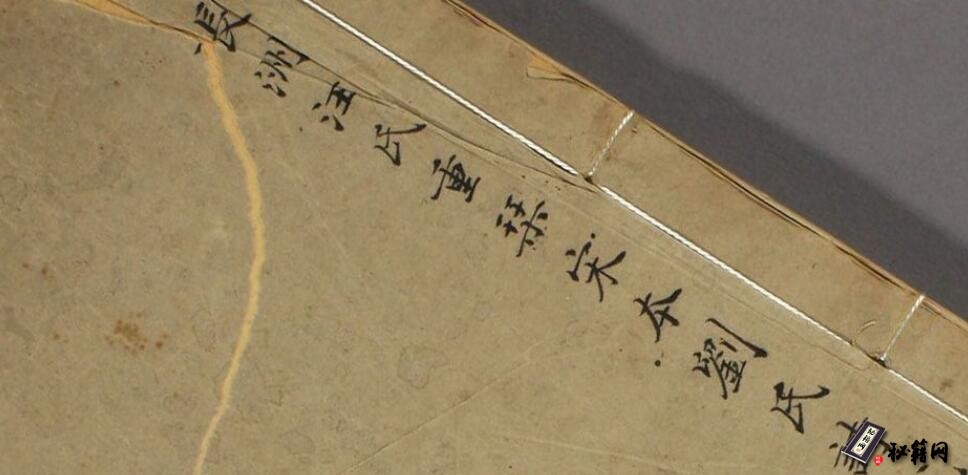 長洲汪氏重栞宋本劉氏
秘籍网